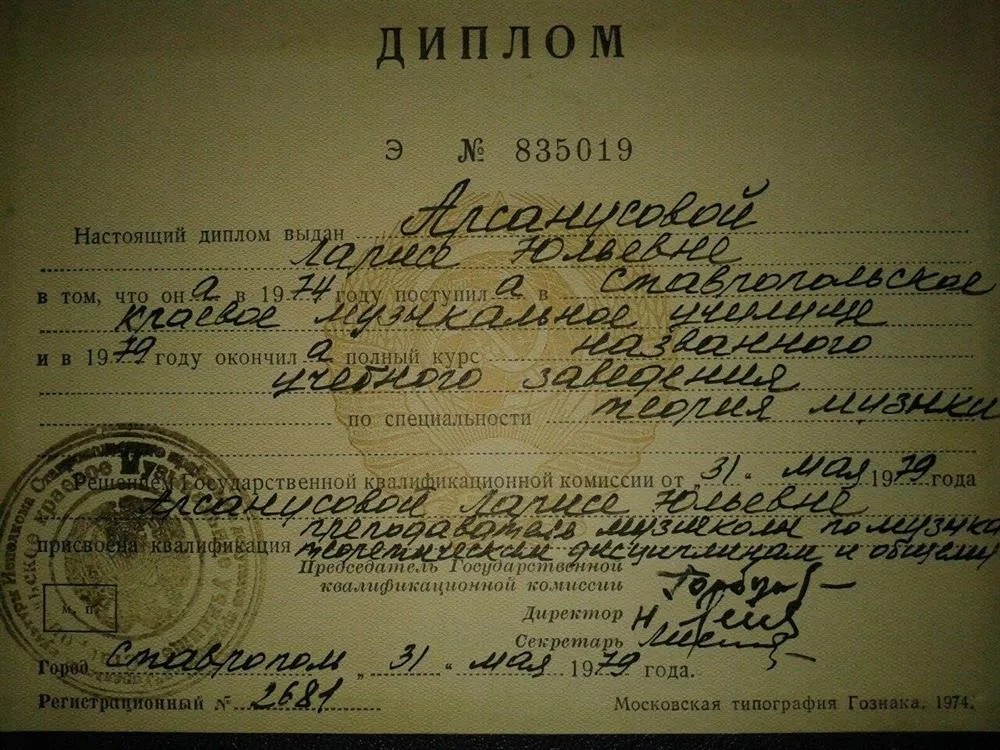 ДИПЛОМ
Э № 835019
Настоящий диплом выдан Арсанусовой
Ларисе Юльевне
в том, что он а в 1974 году поступил а в Ставропольское
краевое музыкальное училище
и в 1979 году окончил а полный курс названного
учебного заведения
по специальности теория музыки
Решением Государственной квалификационной комиссии от „31 " мая 1979 года
Арсанусовой Ларисе Юльевне
преподаватель музшколы по музыкально
присвоена квалификация теоретическим дисциплинам и общему
Председатель Государственной
квалификационной комиссии
Директор
Секретарь
м. п.
Город Ставрополь „ 31 " мая 1979 года.
Регистрационный № 2681
Московская типография Гознака. 1974.